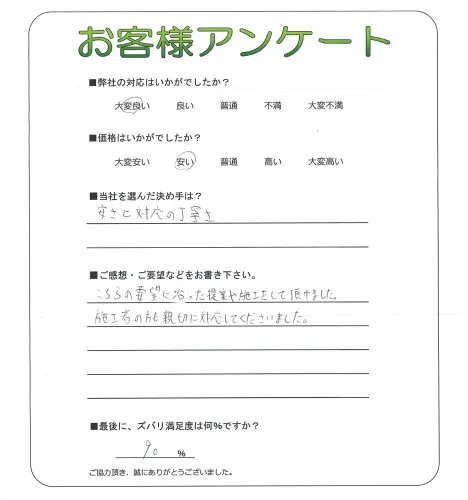 お客様アンケート
■弊社の対応はいかがでしたか？
大変良い 良い 普通 不満 大変不満
■価格はいかがでしたか？
大変安い 安い 普通 高い 大変高い
■当社を選んだ決め手は？
安さと対応の丁寧さ
■ご感想・ご要望などをお書き下さい。
こちらの要望に沿った提案や施工をして頂けました。
施工者の方も親切に対応してくださいました。
■最後に、ズバリ満足度は何％ですか？
90 ％
ご協力頂き、誠にありがとうございました。